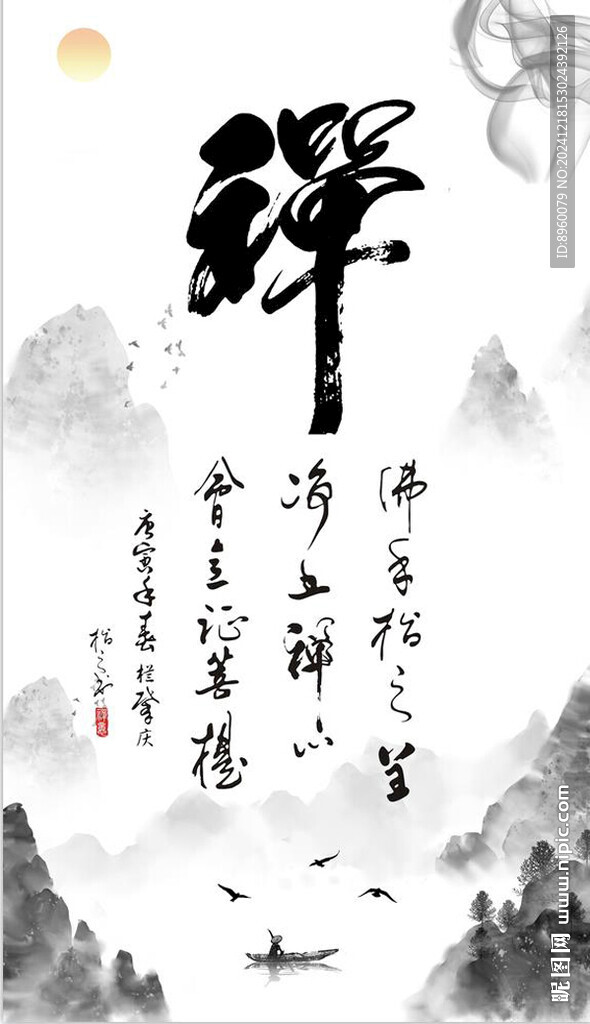 禪
佛手
净土禪心
會立证菩提
庚寅年春於肇庆
ID:8960079 NO:20241218153024392126
昵图网 www.nipic.com